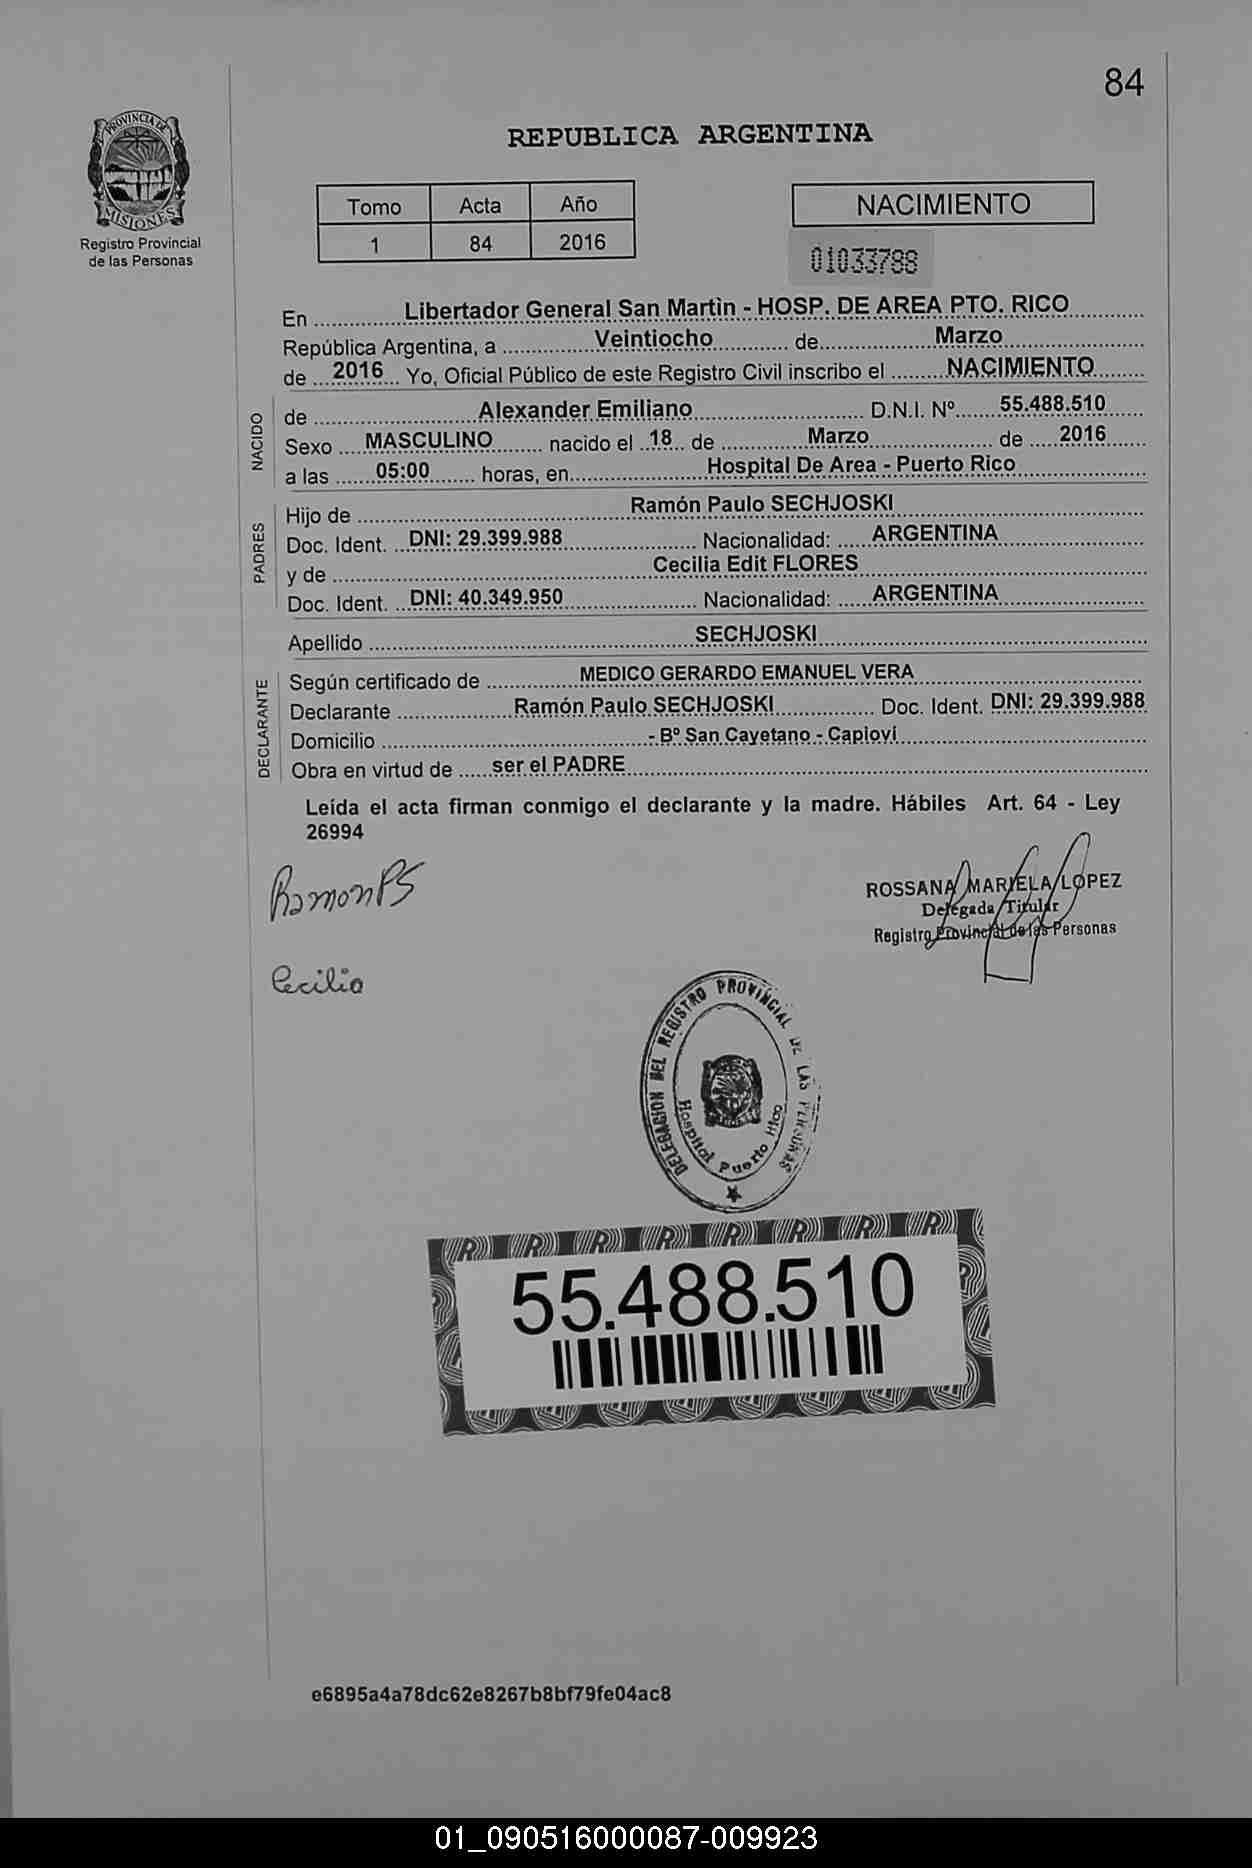 84
PROVINCIA DE
MISIONES
Registro Provincial
de las Personas
REPUBLICA ARGENTINA
Tomo Acta Año
1 84 2016
NACIMIENTO
01033788
En Libertador General San Martìn - HOSP. DE AREA PTO. RICO
República Argentina, a Veintiocho de Marzo
de 2016 Yo, Oficial Público de este Registro Civil inscribo el NACIMIENTO
NACIDO
de Alexander Emiliano D.N.I. Nº 55.488.510
Sexo MASCULINO nacido el 18 de Marzo de 2016
a las 05:00 horas, en Hospital De Area - Puerto Rico
PADRES
Hijo de Ramón Paulo SECHJOSKI
Doc. Ident. DNI: 29.399.988 Nacionalidad: ARGENTINA
y de Cecilia Edit FLORES
Doc. Ident. DNI: 40.349.950 Nacionalidad: ARGENTINA
Apellido SECHJOSKI
DECLARANTE
Según certificado de MEDICO GERARDO EMANUEL VERA
Declarante Ramón Paulo SECHJOSKI Doc. Ident. DNI: 29.399.988
Domicilio - Bº San Cayetano - Capiovi
Obra en virtud de ser el PADRE
Leída el acta firman conmigo el declarante y la madre. Hábiles Art. 64 - Ley
26994
Ramon PS
ROSSANA MARIELA LOPEZ
Delegada Titular
Registro Provincial de las Personas
Cecilia
DELEGACION DEL REGISTRO PROVINCIAL DE LAS PERSONAS
Hospital Puerto Rico
55.488.510
e6895a4a78dc62e8267b8bf79fe04ac8
01_090516000087-009923